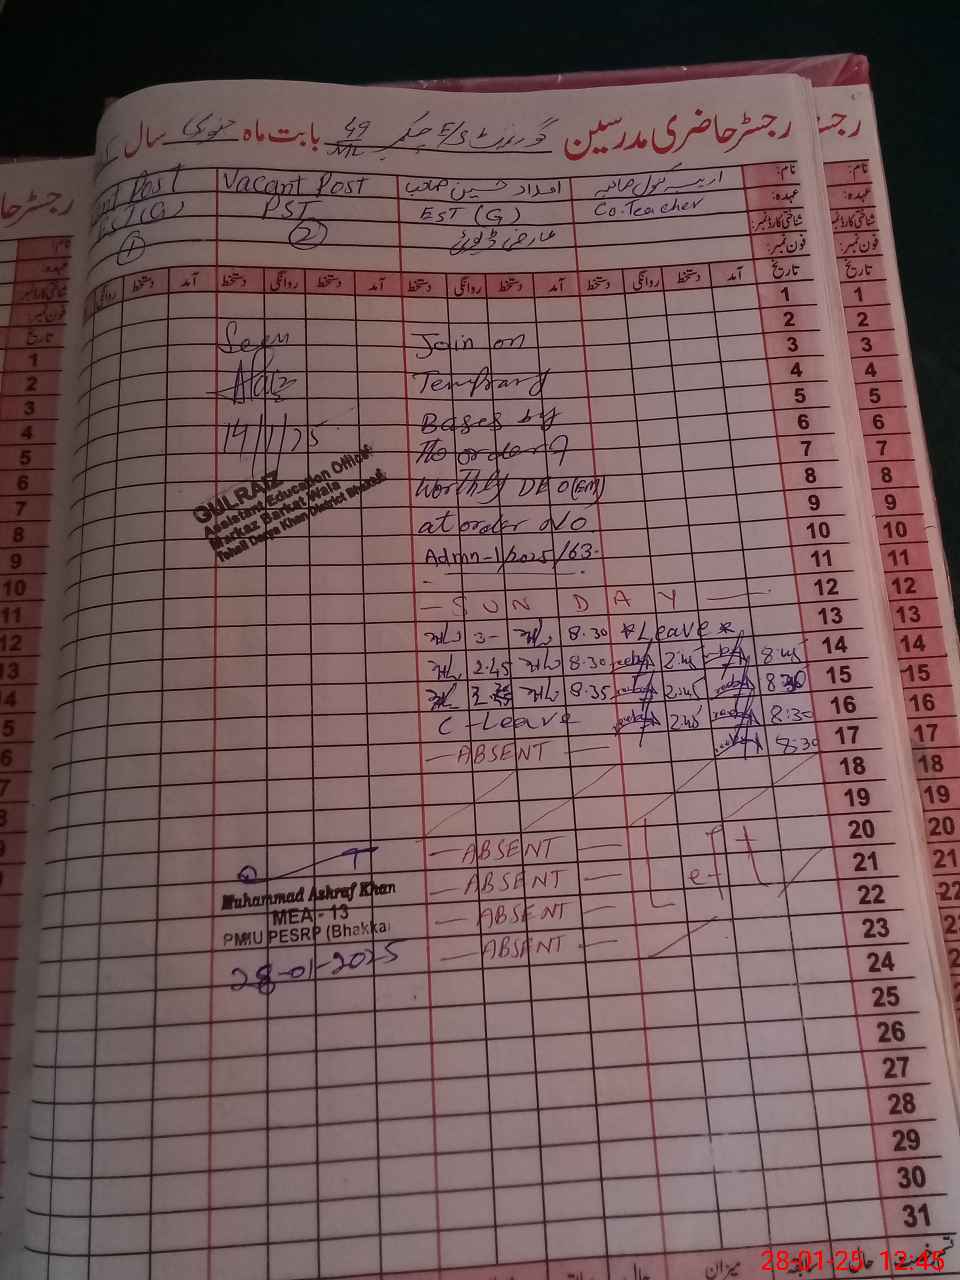 رجسٹر حاضری مدرسین گورنمنٹ E/S چک 49 ML بابت ماہ جنوری سال
نام: امداد حسین صاحب Vacant Post Post
عہدہ: Co. Teacher EST (G) PST EST (G)
شناختی کارڈ نمبر: عارضی ڈیوٹی 2 1
فون نمبر:
تاریخ آمد دستخط روانگی دستخط آمد دستخط روانگی دستخط آمد دستخط روانگی دستخط آمد دستخط روانگی
1
2
3 Join on Seen
4 Temprary
5
6 Bases by 14/1/25
7 the order of
8 worthy DEO (EM)
9 at order No
10
11 Admn-1/2025/63-
12 - SUNDAY -
13 3- 8.30 *Leave*
14 2.45 8.30 2:45 8:45
15 8.35 2:45 8:30
16 C-Leave 2:45 8:30
17 - ABSENT - 8:30
18
19
20 - ABSENT - Left
21 - ABSENT -
22 - ABSENT -
23 - ABSENT -
24
25
26
27
28
29
30
31
GULRAIZ
Assistant Education Officer
Markaz Barkat Wala
Tehsil Darya Khan District Bhakkar
Muhammad Ashraf Khan
MEA - 13
PMIU PESRP (Bhakkar)
28-01-2025
میزان
28-01-25 12:45